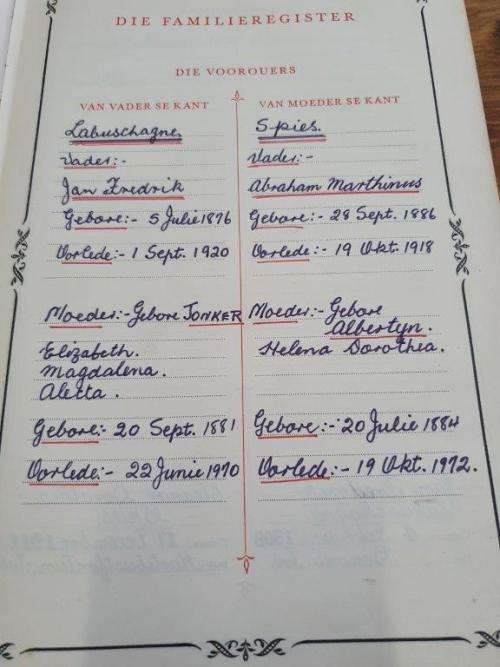 DIE FAMILIEREGISTER
DIE VOOROUERS
VAN VADER SE KANT
Labuschagne.
Vader:-
Jan Fredrik
Gebore:- 5 Julie 1876
Oorlede:- 1 Sept. 1920
Moeder:- Gebore JONKER
Elizabeth.
Magdalena.
Aletta.
Gebore:- 20 Sept. 1881
Oorlede:- 22 Junie 1970
VAN MOEDER SE KANT
Spies.
Vader:-
Abraham Marthinus
Gebore:- 28 Sept. 1886
Oorlede:- 19 Okt. 1918
Moeder:- Gebore
Albertyn.
Helena Dorothea.
Gebore:- 20 Julie 1884
Oorlede:- 19 Okt. 1972.